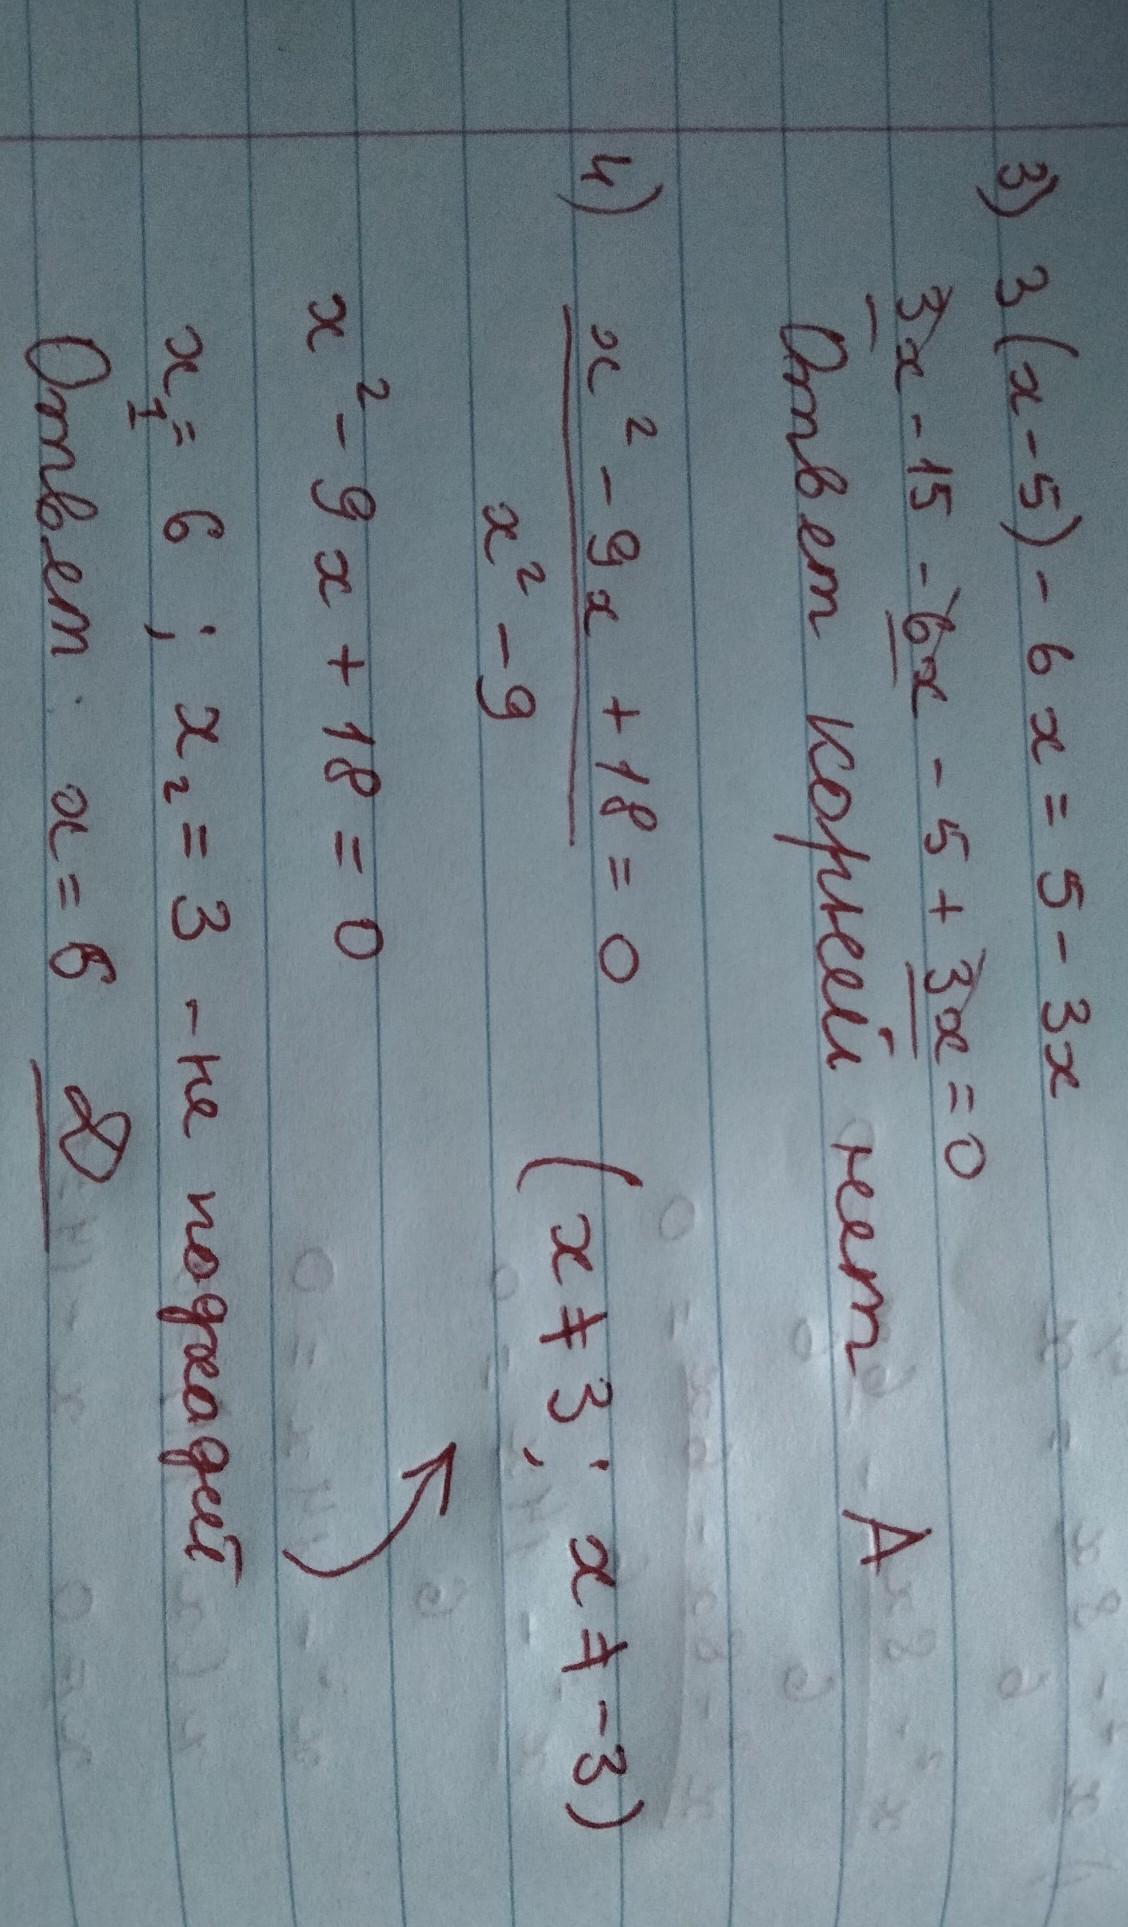 3) 3(x-5)-6x=5-3x
3x-15-6x-5+3x=0
Ответ корней нет А
4) x²-9x+18=0 (x≠3; x≠-3)
x²-9
x²-9x+18=0
x₁=6; x₂=3 -не подходит
Ответ: x=6